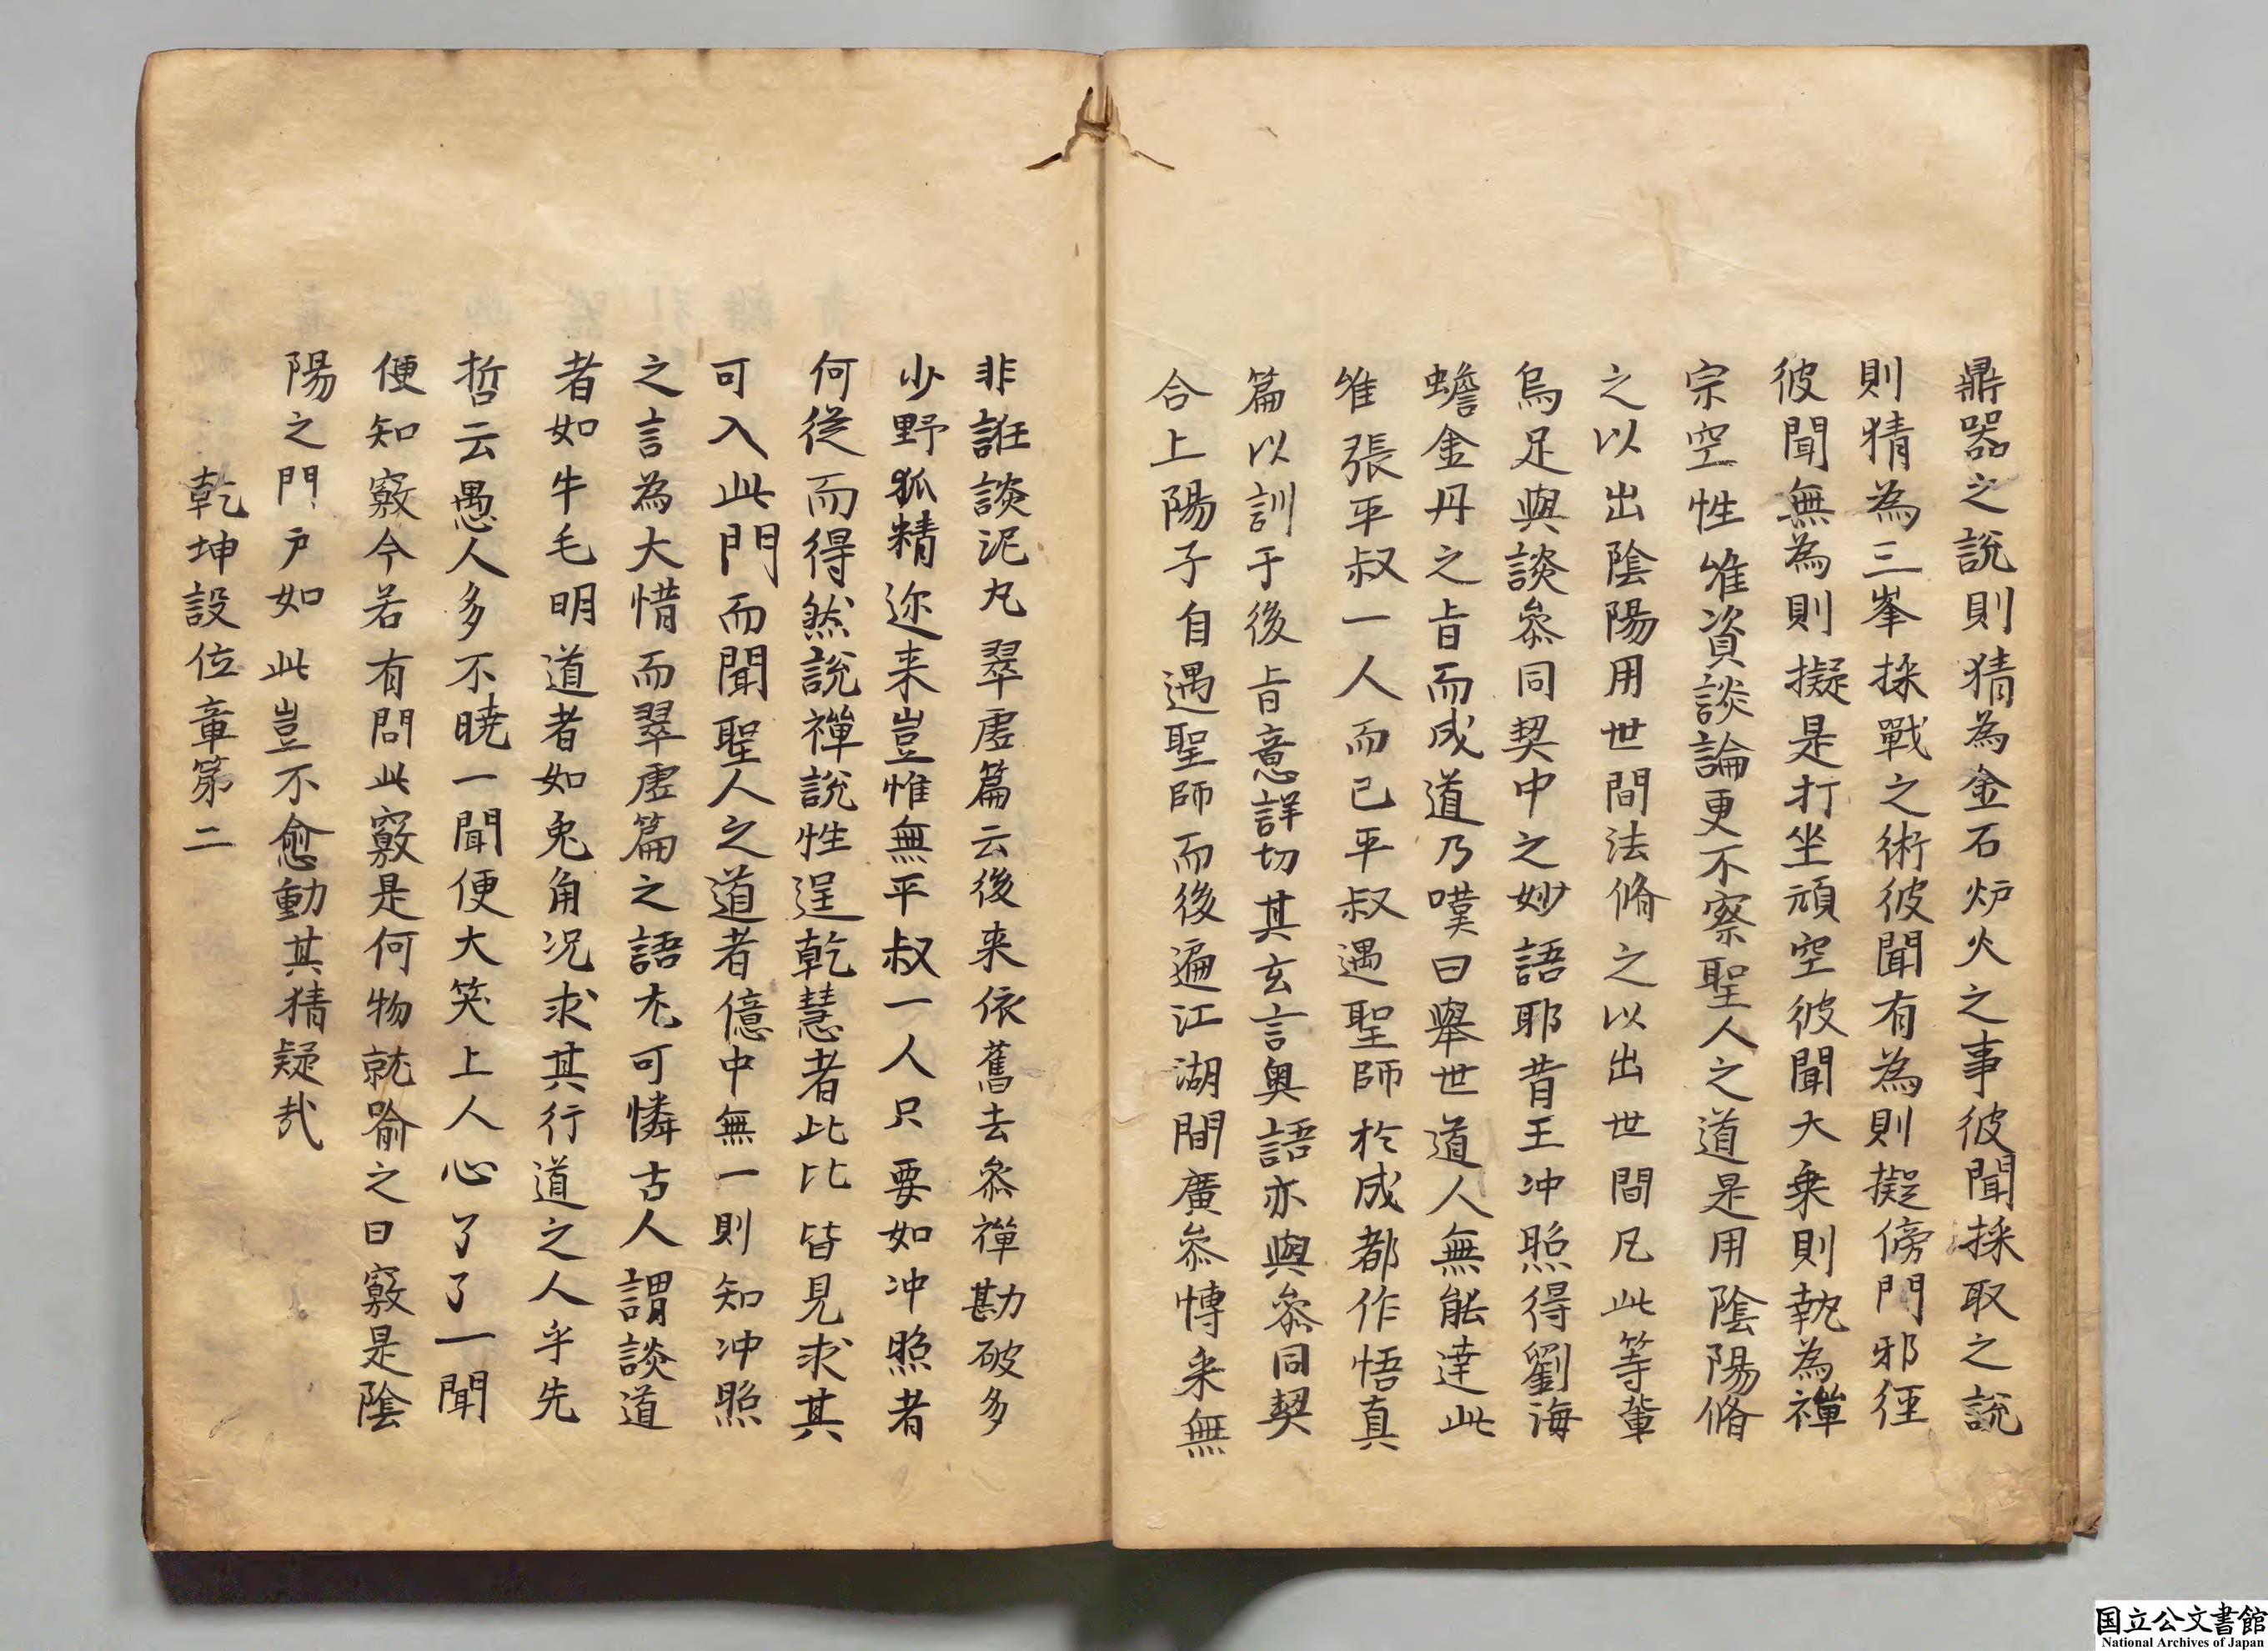 鼎器之說則猜為金石炉火之事彼聞採取之說
則猜為三峯採戰之術彼聞有為則擬傍門邪徑
彼聞無為則擬是打坐頑空彼聞大乗則執為禪
宗空性惟資談論更不察聖人之道是用陰陽脩
之以出陰陽用世間法脩之以出世間凡此等輩
烏足與談叅同契中之妙語耶昔王冲熙得劉海
蟾金丹之㫖而成道乃嘆曰舉世道人無能達此
惟張平叔一人而已平叔遇聖師於成都作悟真
篇以訓于後㫖意詳切其玄言奥語亦與叅同契
合上陽子自遇聖師而後遍江湖間廣叅愽采無
非誑談泥丸翠虗篇云後来依舊去叅禪勘破多
少野狐精迩来豈惟無平叔一人只要如冲熙者
何從而得然說禪說性逞乾慧者比比皆見求其
可入此門而聞聖人之道者億中無一則知冲熙
之言為大惜而翠虗篇之語尤可憐古人謂談道
者如牛毛明道者如兔角况求其行道之人乎先
哲云愚人多不曉一聞便大笑上人心了了一聞
便知竅今若有問此竅是何物就喻之曰竅是陰
陽之門戶如此豈不愈動其猜疑㢤
乾坤設位章第二
国立公文書館
National Archives of Japan